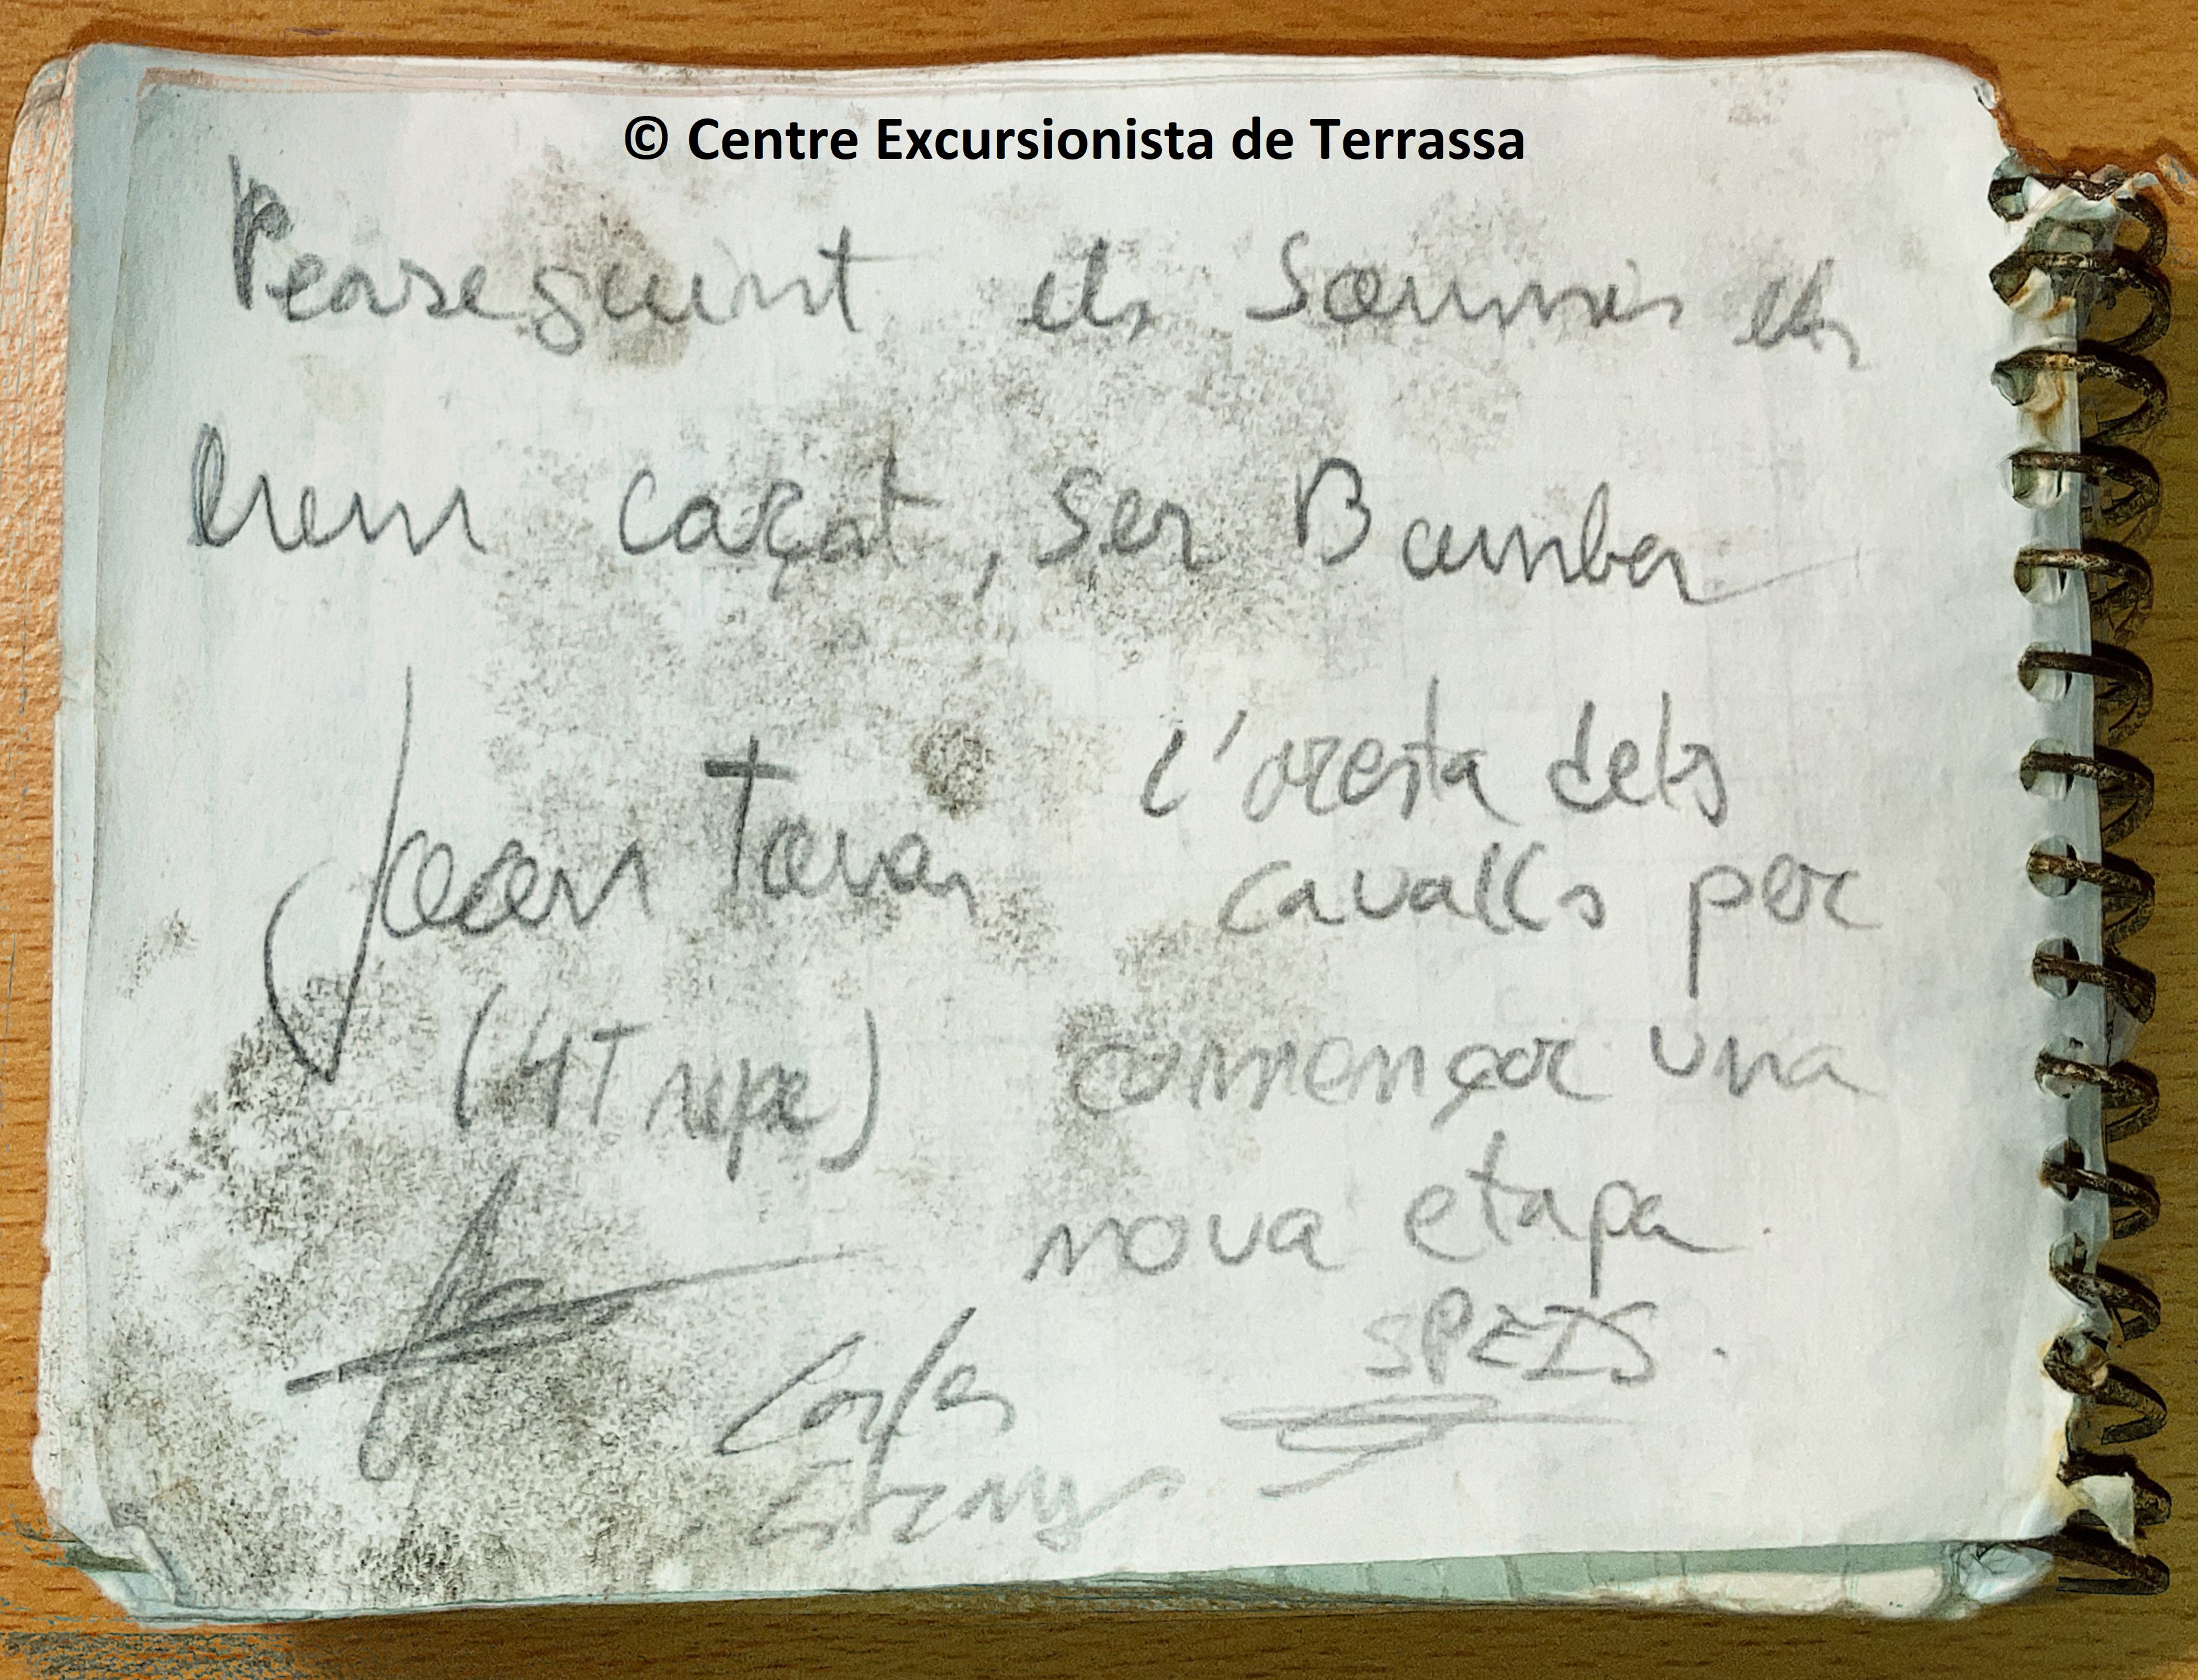 © Centre Excursionista de Terrassa
Perseguint els Somnis els
hem caçat, ser Bomber
Joan Tovar
(4T repe)
l'aresta dels
cavalls per
començar una
nova etapa.
SPEIS.
Carles